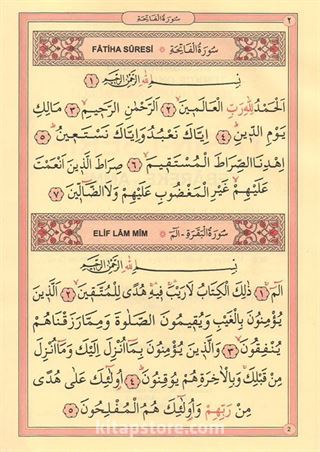 سُورَةُ الْفَاتِحَةِ ٢
FÂTİHA SÛRESİ سُورَةُ الْفَاتِحَةِ
بِسْمِ اللّٰهِ الرَّحْمٰنِ الرَّحٖيمِ ١
اَلْحَمْدُ لِلّٰهِ رَبِّ الْعَالَمٖينَ ٢ اَلرَّحْمٰنِ الرَّحٖيمِ ٣ مَالِكِ
يَوْمِ الدّٖينِ ٤ اِيَّاكَ نَعْبُدُ وَاِيَّاكَ نَسْتَعٖينُ ٥
اِهْدِنَا الصِّرَاطَ الْمُسْتَقٖيمَ ٦ صِرَاطَ الَّذٖينَ اَنْعَمْتَ
عَلَيْهِمْ غَيْرِ الْمَغْضُوبِ عَلَيْهِمْ وَلَا الضَّٓالّٖينَ ٧
ELİF LÂM MÎM سُورَةُ الْبَقَرَةِ - الٓمٓ
بِسْمِ اللّٰهِ الرَّحْمٰنِ الرَّحٖيمِ
الٓمٓ ١ ذٰلِكَ الْكِتَابُ لَا رَيْبَ فٖيهِ هُدًى لِلْمُتَّقٖينَ ٢ اَلَّذٖينَ
يُؤْمِنُونَ بِالْغَيْبِ وَيُقٖيمُونَ الصَّلٰوةَ وَمِمَّا رَزَقْنَاهُمْ
يُنْفِقُونَ ٣ وَالَّذٖينَ يُؤْمِنُونَ بِمَٓا اُنْزِلَ اِلَيْكَ وَمَٓا اُنْزِلَ
مِنْ قَبْلِكَ وَبِالْاٰخِرَةِ هُمْ يُوقِنُونَ ٤ اُو۬لٰٓئِكَ عَلٰى هُدًى
مِنْ رَبِّهِمْ وَاُو۬لٰٓئِكَ هُمُ الْمُفْلِحُونَ ٥
kitapstore.com
2